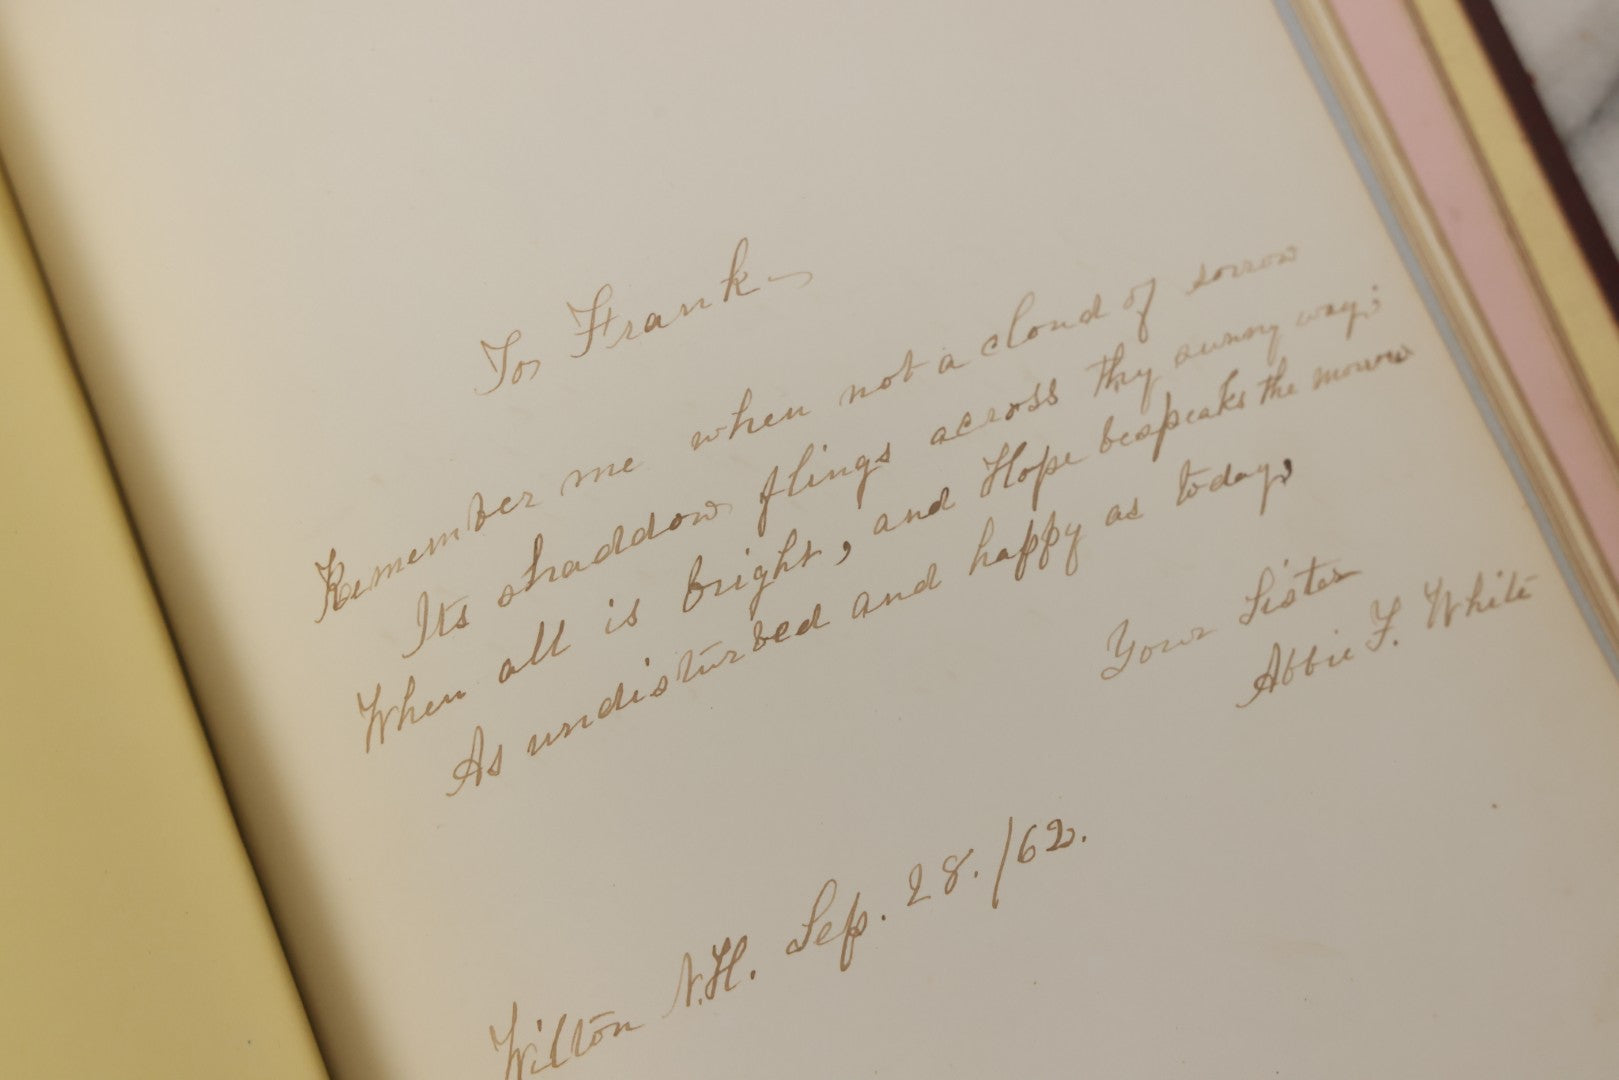 To Frank
Remember me when not a cloud of sorrow
Its shaddow flings across thy sunny way;
When all is bright, and Hope bespeaks the morrow
As undisturbed and happy as today,
Your Sister
Abbie F. White
Wilton N.H. Sep. 28. /62.